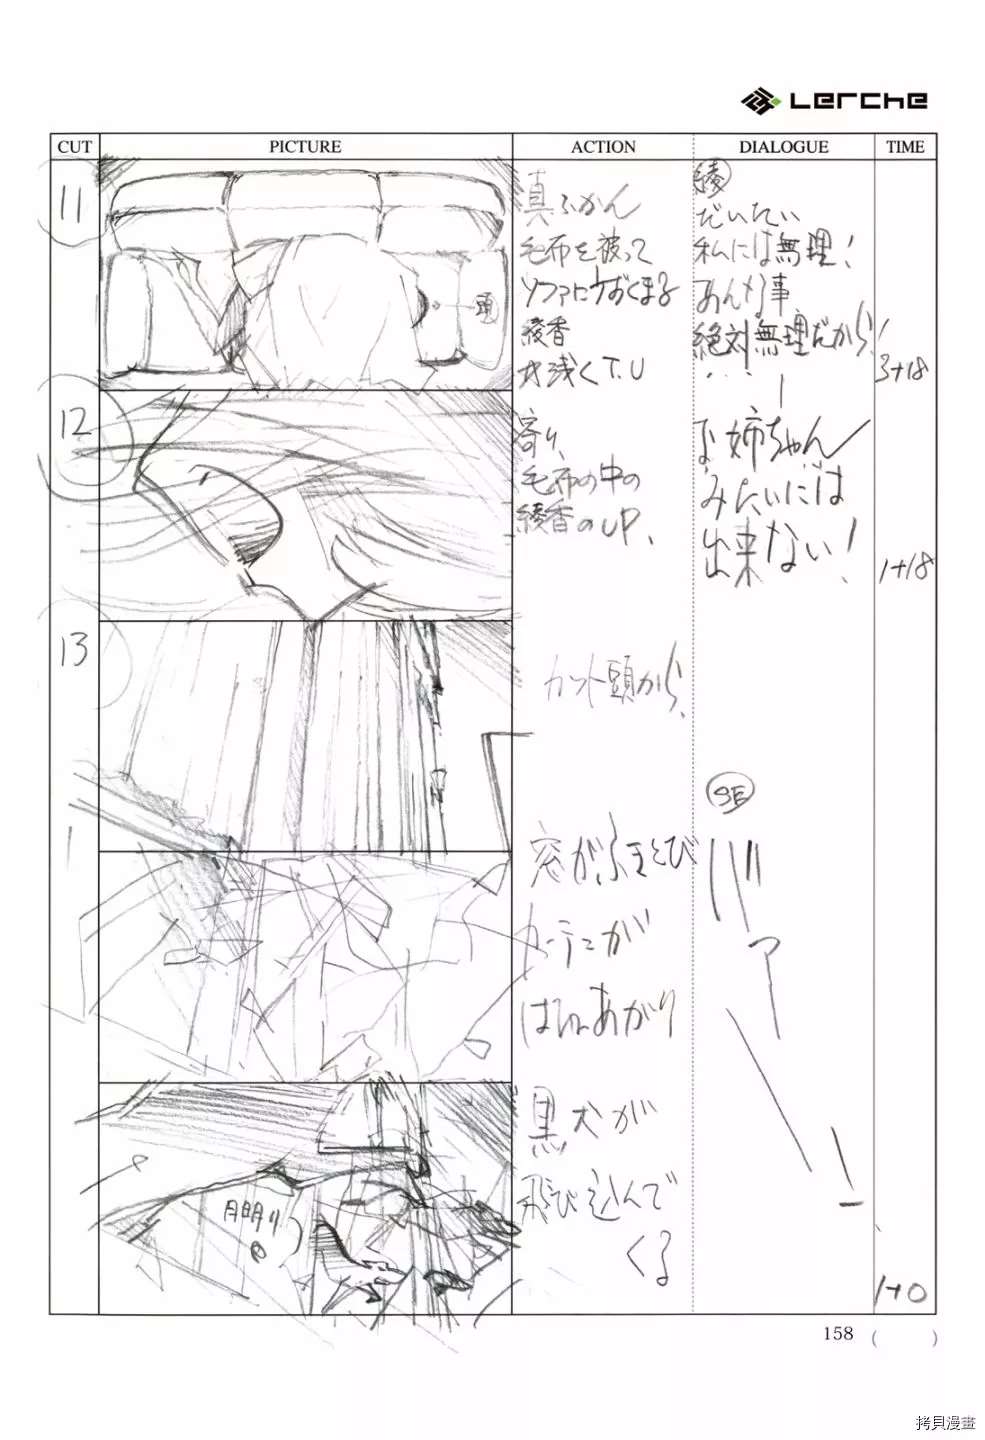 Lerche
CUT PICTURE ACTION DIALOGUE TIME
11
頭
真ふかん
毛布を被って
ソファにうずくまる
綾香
カメラ浅くT.U
綾
だいたい
私には無理!
あんな事
絶対無理だから!
3+18
12
寄り、
毛布の中の
綾香のUP、
お姉ちゃん
みたいには
出来ない!
1+18
13
カット頭から、
窓がふきとび
カーテンが
はねあがり
SE
バリア
月明り
黒犬が
飛び込んで
くる
1+0
158 ( )
拷貝漫畫